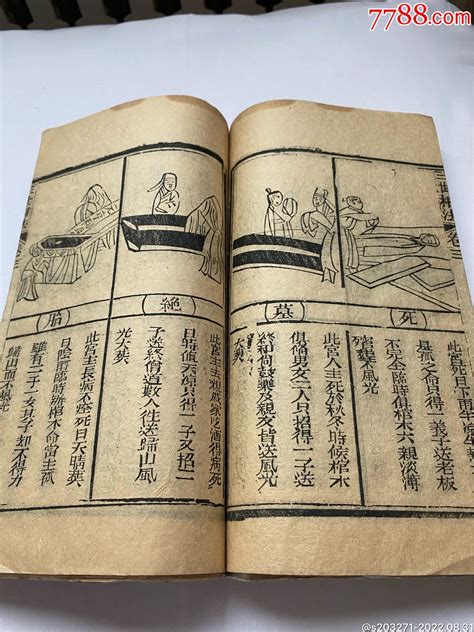 7788.com
死
此宮死日下雨年
是孤之命只得一義子送老
不完全臨時俱棺木六親淡薄
殯葬不風光
墓
此宮人主死於秋冬時候棺木
俱備男女二人只招得一子送
終和尚鼓樂及親友皆送風光
大葬
絕
此宮主主親戚家吃酒得病死
日時值天陰只得一子又招一
子送終僧道數人往送歸山風
光大葬
胎
此宮主長病不痊死日天晴葬
日陰雨臨時措棺木命當主孤
雖有二子一女其子却不得力
歸山而不風光
@s203271-2022.08.31